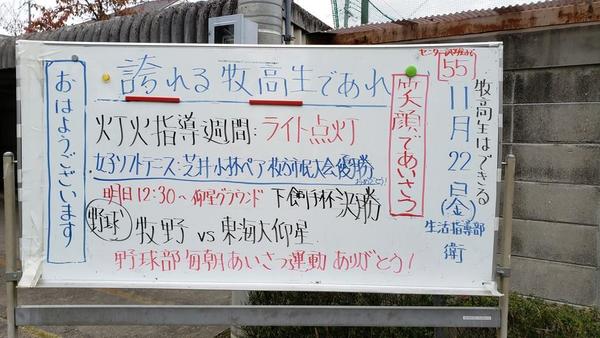 おはようございます
誇れる牧高生であれ
灯火指導週間:ライト点灯
女子ソフトテニス:芝井小林ペア枚方市民大会優勝
おめでとう!
明日12:30~仰星グラウンド 下飼手杯決勝
野球 牧野 vs 東海大仰星
野球部毎朝あいさつ運動ありがとう!
笑顔であいさつ
センター試験まで
55
牧高生はできる
11月22日(金)
生活指導部
衛